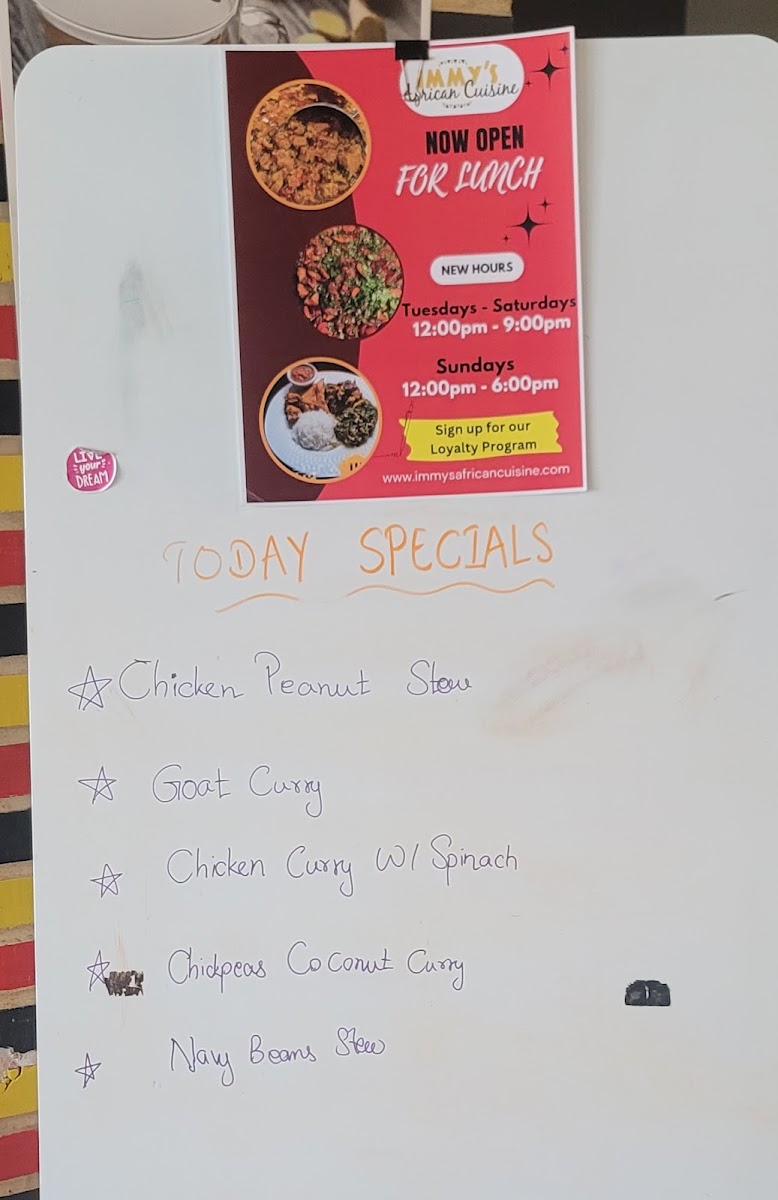 IMMY'S
African Cuisine
NOW OPEN
FOR LUNCH
NEW HOURS
Tuesdays - Saturdays
12:00pm - 9:00pm
Sundays
12:00pm - 6:00pm
Sign up for our
Loyalty Program
www.immysafricancuisine.com
LIVE
your
DREAM
TODAY SPECIALS
Chicken Peanut Stew
Goat Curry
Chicken Curry W/ Spinach
Chickpeas Coconut Curry
Navy Beans Stew